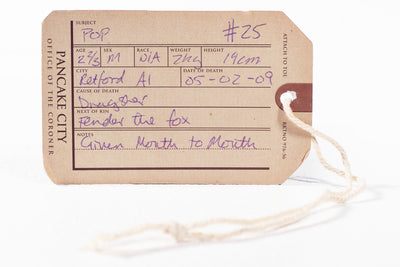 SUBJECT
POP
#25
AGE SEX RACE WEIGHT HEIGHT
2 2/3 M N/A 2kg 19cm
CITY DATE OF DEATH
Retford A1 05-02-09
CAUSE OF DEATH
NEXT OF KIN
Fender the fox
NOTES
Given Mouth to Mouth
PANCAKE CITY
OFFICE OF THE CORONER
ATTACH TO TOE